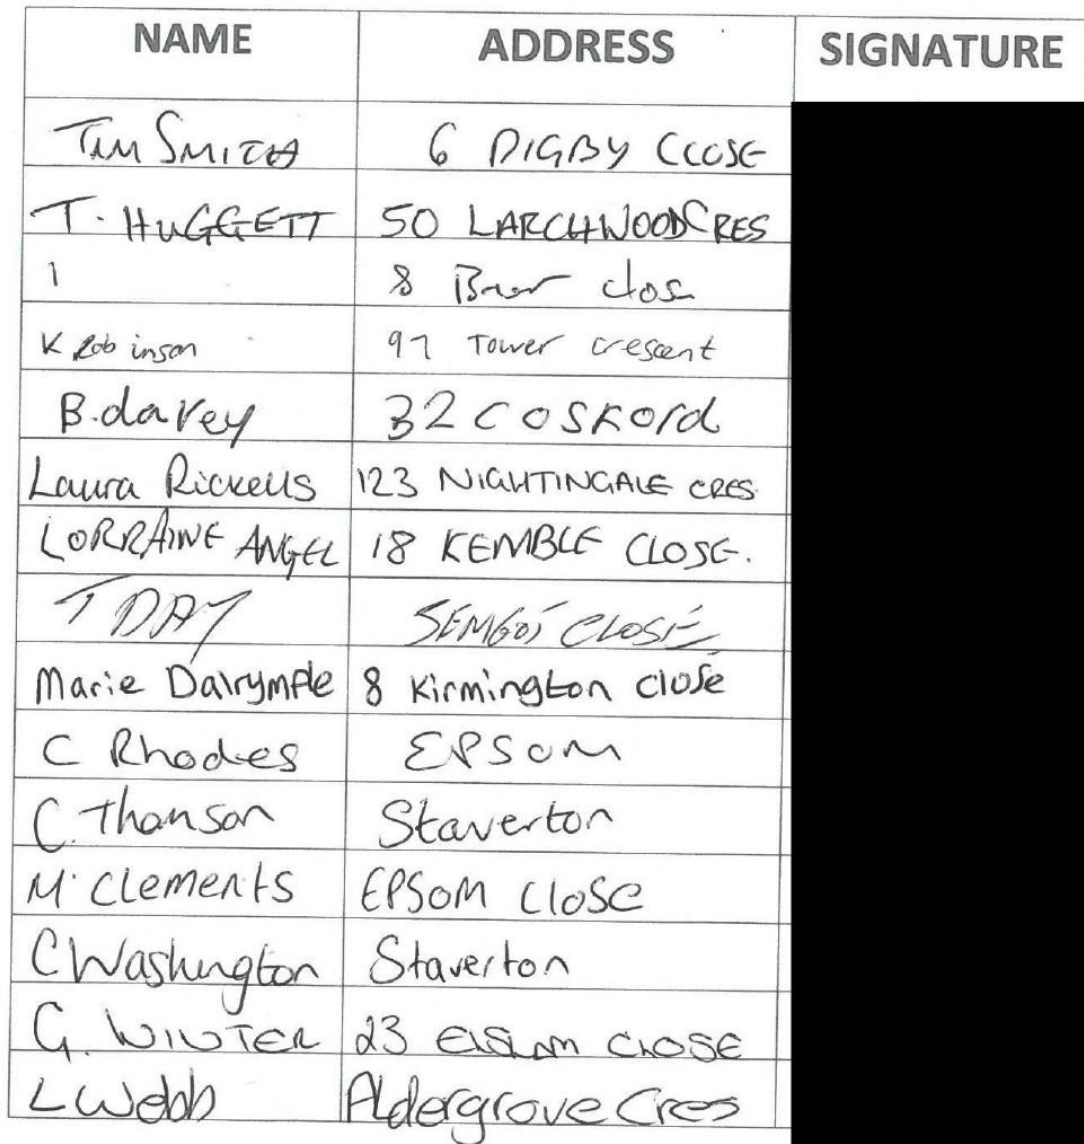 NAME ADDRESS SIGNATURE
Tim SMITH 6 DIGBY CLOSE
T. HUGGETT 50 LARCHWOOD CRES
1 8 close
K Robinson 97 Tower crescent
B. davey 32 COSFORD
Laura Ricketts 123 NIGHTINGALE CRES
LORRAINE ANGEL 18 KEMBLE CLOSE.
T DAY CLOSE
Marie Dalrymple 8 Kirmington close
C Rhodes EPSOM
C. Staverton
M. Clements EPSOM Close
C Washington Staverton
G. WINTER 23 CLOSE
L Webb Aldergrove Cres